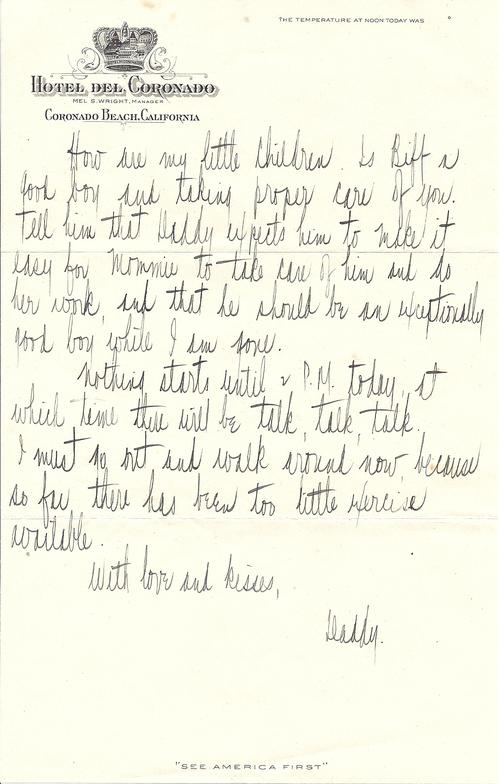 THE TEMPERATURE AT NOON TODAY WAS °
HOTEL DEL CORONADO
MEL S. WRIGHT, MANAGER
CORONADO BEACH, CALIFORNIA
How are my little children. Is Biff a
good boy and taking proper care of you.
Tell him that Daddy expects him to make it
easy for Mommie to take care of him and do
her work, and that he should be an exceptionally
good boy while I am gone.
Nothing starts until 2 P.M. today, at
which time there will be talk, talk, talk.
I must go out and walk around now, because
so far there has been too little exercise
available.
With love and kisses,
Daddy.
"SEE AMERICA FIRST"